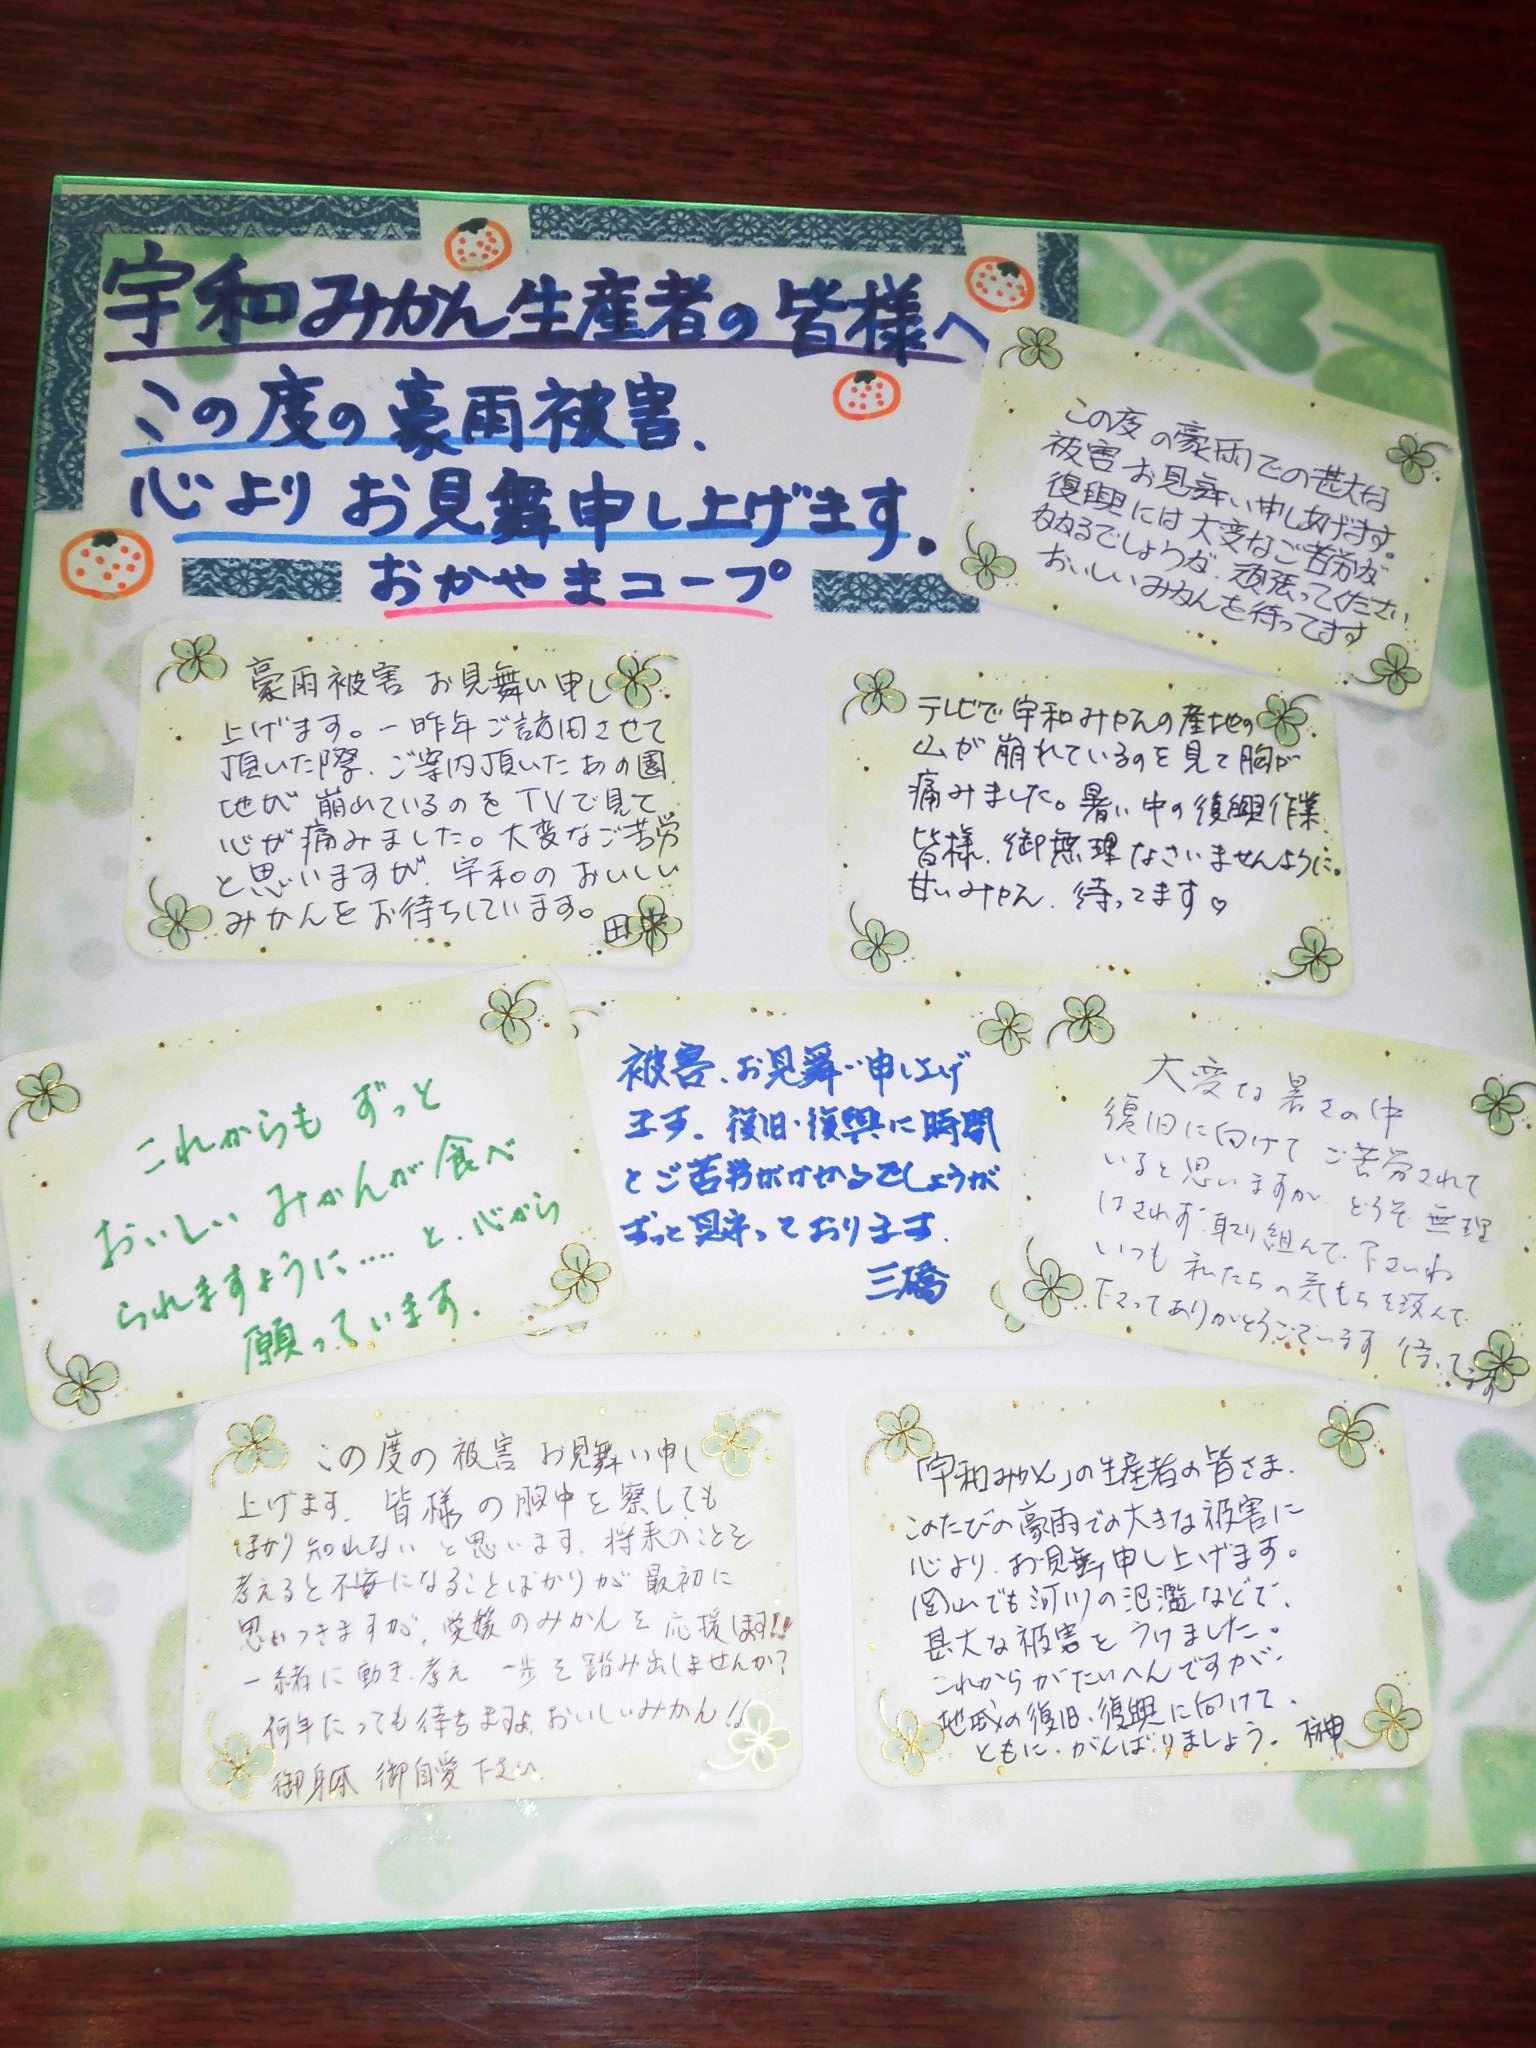 宇和みかん生産者の皆様へ
この度の豪雨被害、
心よりお見舞申し上げます。
おかやまコープ
この度の豪雨での甚大な
被害お見舞い申しあげます。
復興には大変なご苦労が
おありでしょうが、頑張ってください
おいしいみかんを待ってます
豪雨被害 お見舞い申し
上げます。一昨年ご訪問させて
頂いた際、ご案内頂いたあの園
地が崩れているのをTVで見て
心が痛みました。大変なご苦労
と思いますが、宇和のおいしい
みかんをお待ちしています。 田中
テレビで宇和みかんの産地の
山が崩れているのを見て胸が
痛みました。暑い中の復興作業、
皆様、御無理なさいませんように。
甘いみかん、待ってます♡
これからも ずっと
おいしい みかんが食べ
られますように‥‥と、心から
願っています。
被害、お見舞い申し上げ
ます。復旧・復興に時間
とご苦労がかかるでしょうが
ずっと見守っております。
三橋
大変な暑さの中
復旧に向けて ご苦労されて
いると思いますが、どうぞ無理
はされず、取り組んで下さいね
いつも 私たちの気もちを汲んで
下さってありがとうございます 待ってます
この度の被害 お見舞い申し
上げます。皆様の胸中を察しても
はかり知れないと思います。将来のことを
考えると不安になることばかりが最初に
思いつきますが、愛媛のみかんを応援します!!
一緒に動き、考え 一歩を踏み出しませんか?
何年たっても待ちますよ、おいしいみかん!!
御身体 御自愛下さい
「宇和みかん」の生産者の皆さま、
このたびの豪雨での大きな被害に
心より、お見舞い申し上げます。
岡山でも河川の氾濫などで、
甚大な被害をうけました。
これからがたいへんですが、
地域の復旧・復興に向けて、
ともに、がんばりましょう。 榊